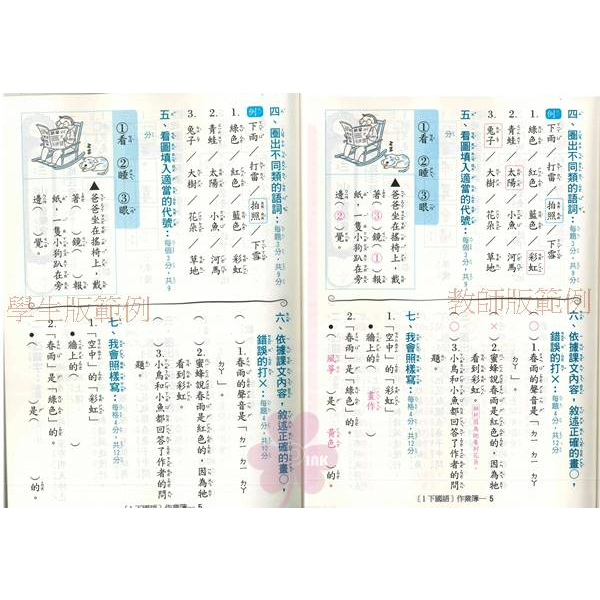 四、圈出不同類的語詞：每題3分，共9分
例 下雨／打雷／拍照／下雪
1. 綠色／紅色／藍色／彩虹
2. 青蛙／太陽／小魚／河馬
3. 兔子／大樹／花朵／草地
五、看圖填入適當的代號：每個3分，共9分
①看 ②睡 ③眼
▲爸爸坐在搖椅上，戴
著（ ）鏡（ ）報
紙，一隻小狗趴在旁
邊（ ）覺。
學生版範例
六、依據課文內容，敘述正確的畫○，
錯誤的打×：每題4分，共12分
（ ）1.春雨的聲音是「ㄉㄧ ㄉㄧ ㄉㄚ
ㄉㄚ」。
（ ）2.蜜蜂說春雨是紅色的，因為牠
看到彩虹。
（ ）3.小鳥和小魚都回答了作者的問
題。
七、我會照樣寫：每格4分，共12分
1.「空中」的「彩虹」
●牆上的（ ）
2.「春雨」是「綠色」的。
●（ ）是（ ）的。
〔1下國語〕作業簿—5
四、圈出不同類的語詞：每題3分，共9分
例 下雨／打雷／拍照／下雪
1. 綠色／紅色／藍色／彩虹
2. 青蛙／太陽／小魚／河馬
3. 兔子／大樹／花朵／草地
五、看圖填入適當的代號：每個3分，共9分
①看 ②睡 ③眼
▲爸爸坐在搖椅上，戴
著（③）鏡（①）報
紙，一隻小狗趴在旁
邊（②）覺。
教師版範例
六、依據課文內容，敘述正確的畫○，
錯誤的打×：每題4分，共12分
（○）1.春雨的聲音是「ㄉㄧ ㄉㄧ ㄉㄚ
ㄉㄚ」。
（×）2.蜜蜂說春雨是紅色的，因為牠
看到彩虹。
（○）3.小鳥和小魚都回答了作者的問
題。
七、我會照樣寫：每格4分，共12分
1.「空中」的「彩虹」
●牆上的（畫作）
2.「春雨」是「綠色」的。
●（風箏）是（黃色）的。
〔1下國語〕作業簿—5
INK